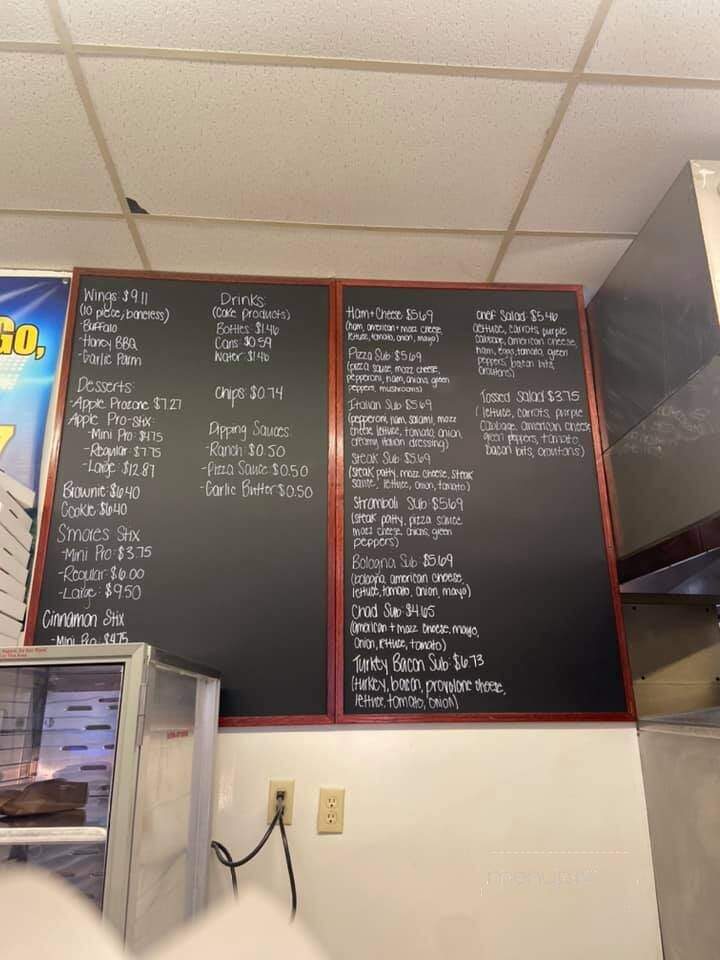 Go,
Wings $9.11
(10 piece, boneless)
-Buffalo
-Honey BBQ
-Garlic Parm
Desserts:
-Apple Prozone $7.27
Apple Pro-Stix:
-Mini Pro: $4.75
-Regular: $7.75
-Large: $12.87
Brownie: $6.40
Cookie: $6.40
S'mores Stix
-Mini Pro: $3.75
-Regular: $6.00
-Large: $9.50
Cinnamon Stix
-Mini Pro: $4.75
Drinks:
(Coke products)
Bottles: $1.46
Cans: $0.59
Water: $1.46
Chips: $0.74
Dipping Sauces:
-Ranch: $0.50
-Pizza Sauce: $0.50
-Garlic Butter: $0.50
Ham + Cheese: $5.69
(ham, american + mozz cheese,
lettuce, tomato, onion, mayo)
Pizza Sub: $5.69
(pizza sauce, mozz cheese,
pepperoni, ham, onions, green
peppers, mushrooms)
Italian Sub: $5.69
(pepperoni, ham, salami, mozz
cheese, lettuce, tomato, onion,
creamy italian dressing)
Steak Sub: $5.69
(steak patty, mozz cheese, steak
sauce, lettuce, onion, tomato)
Stromboli Sub: $5.69
(steak patty, pizza sauce
mozz cheese, onions, green
peppers)
Bologna Sub: $5.69
(bologna, american cheese,
lettuce, tomato, onion, mayo)
Chad Sub: $4.65
(american + mozz cheese, mayo,
onion, lettuce, tomato)
Turkey Bacon Sub: $6.73
(turkey, bacon, provolone cheese,
lettuce, tomato, onion)
Chef Salad: $5.46
(lettuce, carrots, purple
cabbage, american cheese,
ham, eggs, tomato, green
peppers, bacon bits,
croutons)
Tossed Salad: $3.75
(lettuce, carrots, purple
cabbage, american cheese
green peppers, tomato,
bacon bits, croutons)